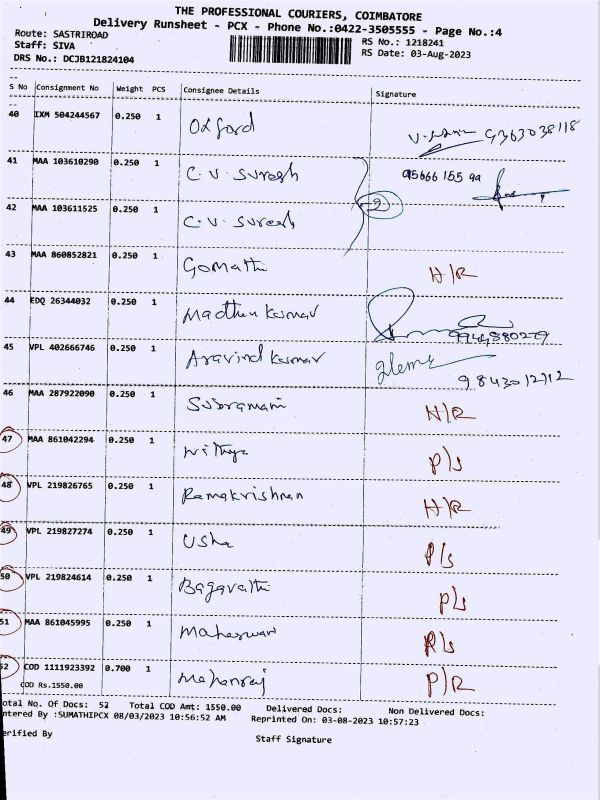 THE PROFESSIONAL COURIERS, COIMBATORE
Delivery Runsheet - PCX - Phone No.:0422-3505555 - Page No.:4
Route: SASTRIROAD
RS No.: 1218241
Staff: SIVA
RS Date: 03-Aug-2023
DRS No.: DCJB121824104
S No Consignment No Weight PCS Consignee Details Signature
40 IXM 504244567 0.250 1 Oxford 9363038118
41 MAA 103610290 0.250 1 C.V. Suresh 95666 155 99
2
42 MAA 103611525 0.250 1 C.V. Suresh
43 MAA 860852821 0.250 1 Gomathi H/R
44 EDQ 26344032 0.250 1 Madhan Kumar 9944880279
45 VPL 402666746 0.250 1 Aravind Kumar 9843012112
46 MAA 287922090 0.250 1 Subramani H/R
47 MAA 861042294 0.250 1 Nithya P/s
48 VPL 219826765 0.250 1 Ramakrishnan H/R
49 VPL 219827274 0.250 1 Usha P/s
50 VPL 219824614 0.250 1 Bagavathi P/s
51 MAA 861045995 0.250 1 Maheswari P/s
52 COD 1111923392 0.700 1 Mohanraj P/R
COD Rs.1550.00
otal No. Of Docs: 52 Total COD Amt: 1550.00 Delivered Docs: Non Delivered Docs:
ntered By :SUMATHIPCX 08/03/2023 10:56:52 AM Reprinted On: 03-08-2023 10:57:23
erified By
Staff Signature